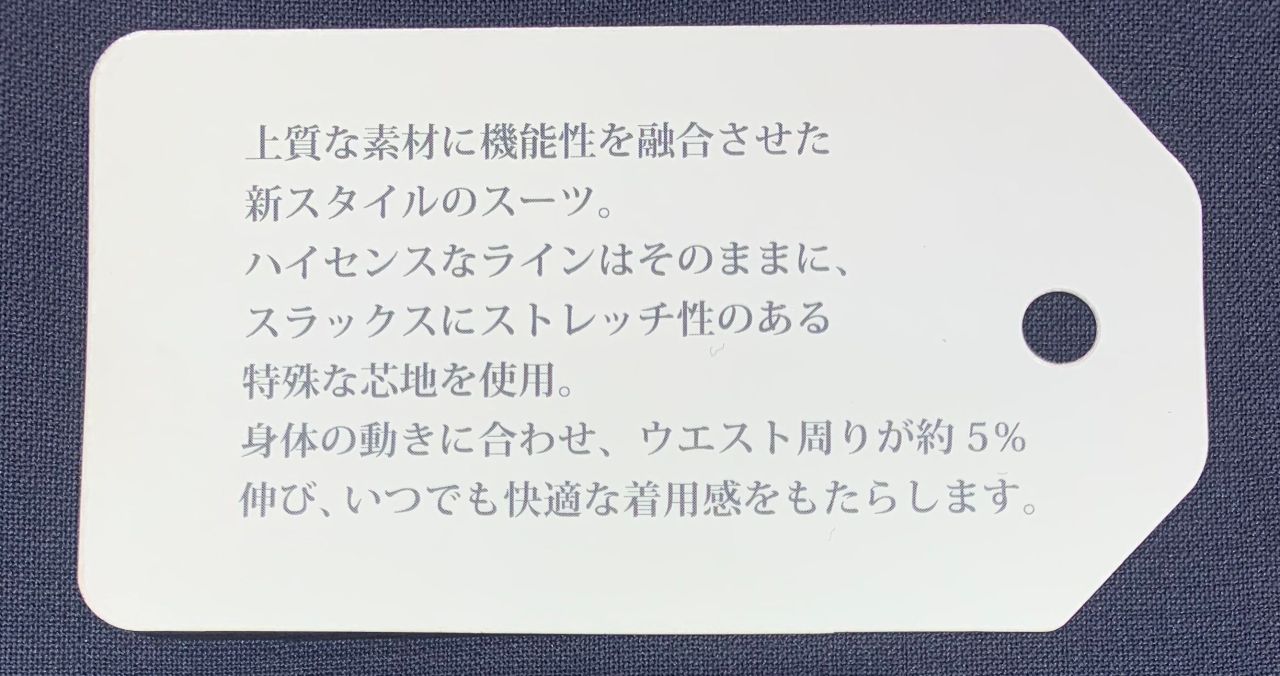 上質な素材に機能性を融合させた
新スタイルのスーツ。
ハイセンスなラインはそのままに、
スラックスにストレッチ性のある
特殊な芯地を使用。
身体の動きに合わせ、ウエスト周りが約5%
伸び、いつでも快適な着用感をもたらします。